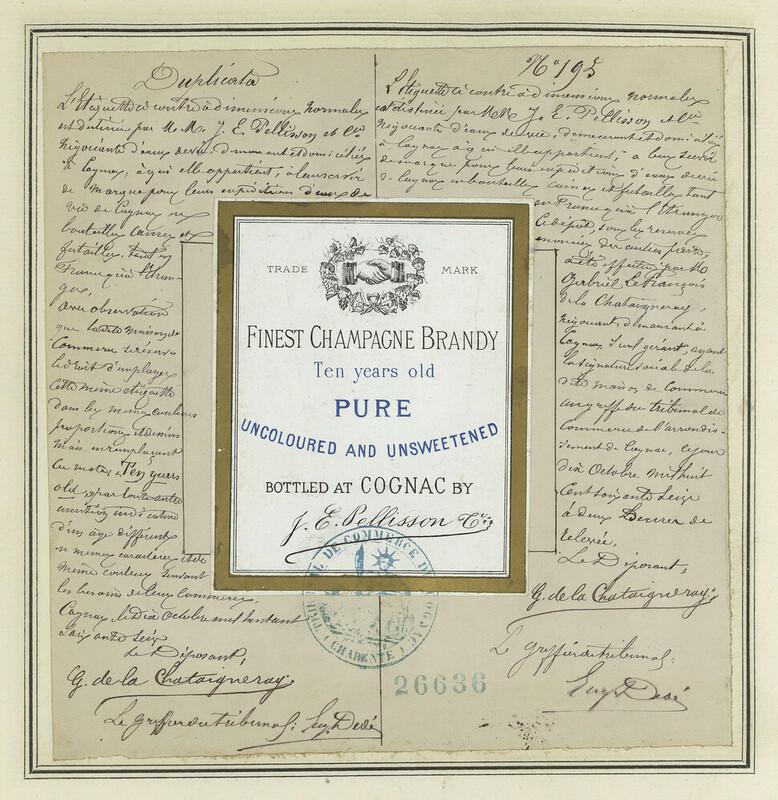 Duplicata
L'Etiquette ci contre à dimensions normales
est destinée par M.M. J. E. Pellisson et Cie
Négociants d'eaux de vie, demeurant et domiciliés
à Cognac, à qui elle appartient, à leur servir
de Marque pour leurs expéditions d'eaux de
vie de Cognac en
bouteilles, caisses et
futailles, tant en
France qu'à l'étran-
ger,
avec observation
que la dite maison de
Commerce se réserve
le droit d'employer
cette même étiquette
dans les mêmes couleurs
proportions et dessins
mais en remplaçant
les mots, Ten years
old, par toute autre
mention indicative
d'un âge différent
en mêmes caractères et de
même couleur suivant
les besoins de leur commerce.
Cognac, le dix octobre mil huit cent
soixante seize
Le Déposant,
G. de la Chataigneray
Le greffier du tribunal: Eug. Dedé
No 195
L'Etiquette ci contre à dimensions normales
est destinée par M.M. J. E. Pellisson et Cie
Négociants d'eaux de vie, demeurant et domiciliés
à Cognac à qui elle appartient, à leur servir
de marque pour leurs expéditions d'eaux de vie
de Cognac en bouteilles, caisses et futailles tant
en France qu'à l'étranger
Ce dépôt, sous les réserves
énoncées
a été effectué par M.
Gabriel LeFrançois
de la Chataigneray,
Négociant, demeurant à
Cognac, l'un gérant, ayant
la signature sociale de la
dite maison de Commerce
au greffe du tribunal de
Commerce de l'arrondis-
sement de Cognac, ce jour
dix Octobre mil huit
Cent soixante seize
à deux heures de
relevée.
Le Déposant,
G. de la Chataigneray
Le greffier du tribunal:
Eug. Dedé
TRADE MARK
FINEST CHAMPAGNE BRANDY
Ten years old
PURE
UNCOLOURED AND UNSWEETENED
BOTTLED AT COGNAC BY
J. E. Pellisson & Cie
DE COMMERCE
CHARENTE
26636